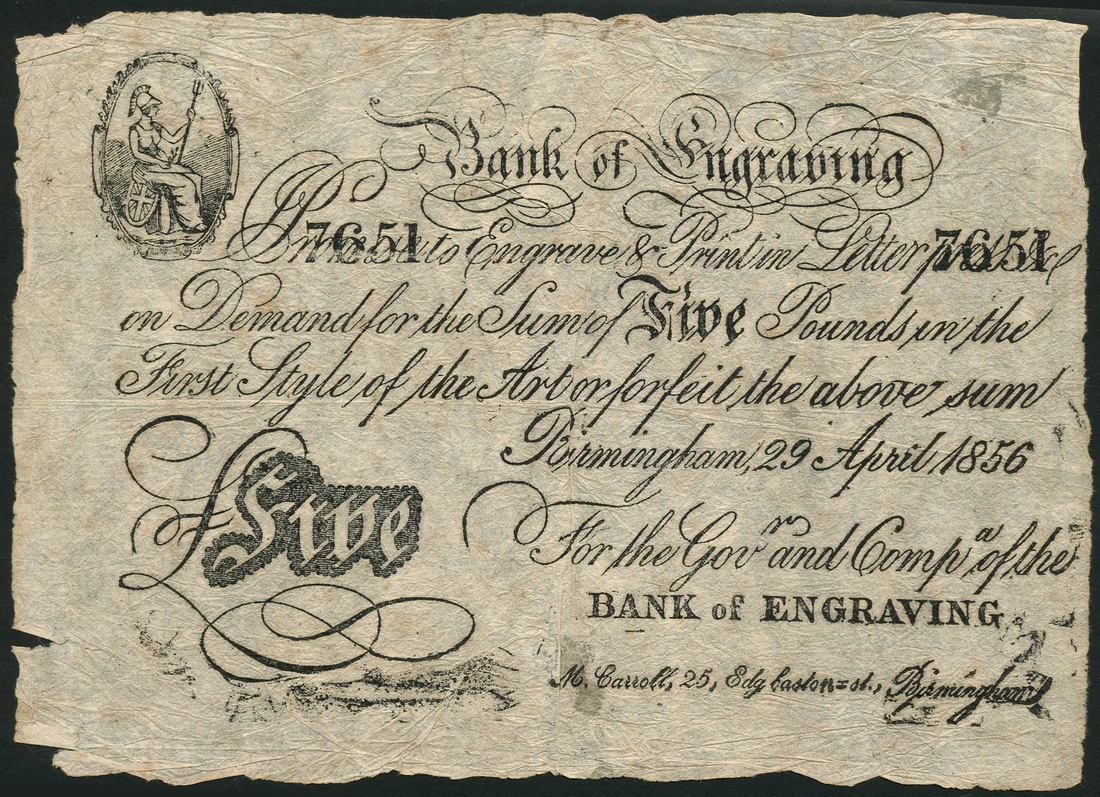 Bank of Engraving
7651 to Engrave & Print in Letter 7651
on Demand for the Sum of Five Pounds in the
First Style of the Art or forfeit the above sum
Birmingham, 29 April 1856
£Five
For the Gov.r and Comp.a of the
BANK of ENGRAVING
M. Carroll, 25, Edgbaston=st., Birmingham